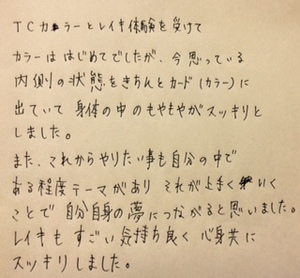 TCカラーとレイキ体験を受けて
カラーははじめてでしたが、今思っている
内側の状態をきちんとカード(カラー)に
出ていて 身体の中のもやもやがスッキリと
しました。
また、これからやりたい事も自分の中で
ある程度テーマがあり それが上手くいく
ことで 自分自身の夢につながると思いました。
レイキもすごい気持ち良く 心身共に
スッキリしました。